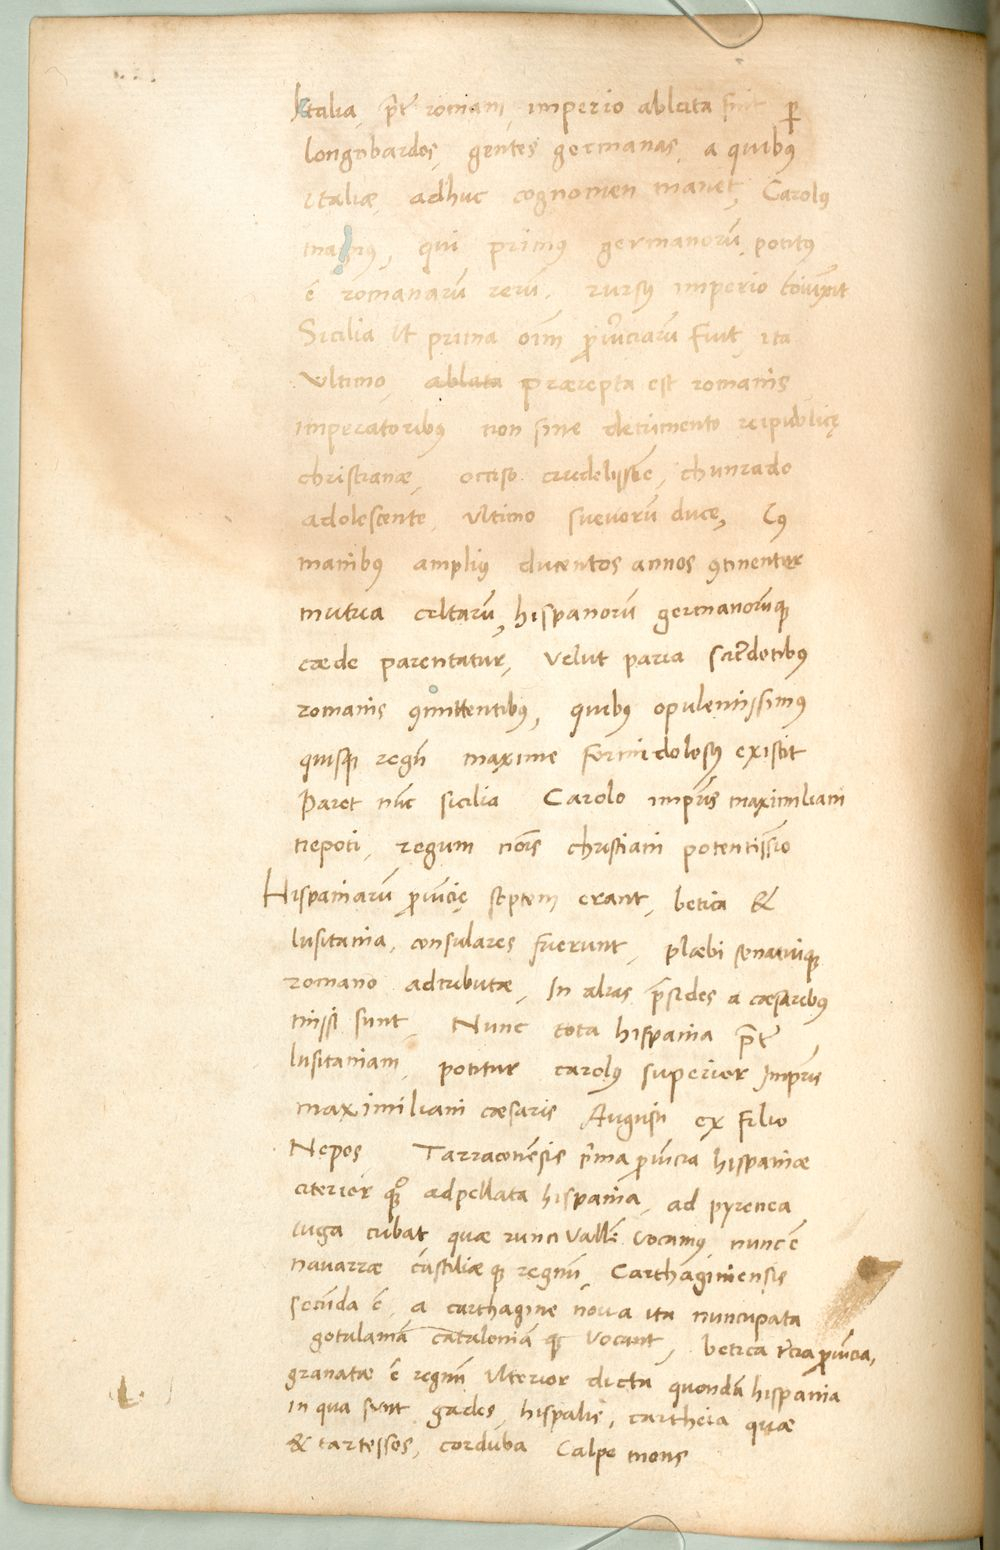 Italia, p̃t romam, imperio ablata fuit per
longobardos, gentes germanas, a quibus
Italiæ adhuc cognomen manet, Carolus
magnus, qui primus germanorũ potitus
ẽ romanarũ rerũ, rursus imperio
Sicilia ut prima oĩm ꝓvĩciarũ fuit, ita
ultimo, ablata præerepta est romanis
imperatoribus non sine detrimento reipublicę
christianæ, occiso crudelissĩe, chunrado
adolescente, ultimo suevorũ duce, Cuꝰ
manibus amplius ducentos annos ꝯtinenter
mutua celtarũ, hispanorũ germanorũq
cæde parentatur, velut paria sac̃dotibus
romanis ꝯmittentibus, quibus opulentissimus
quisq̃ regũ maxime formidolosus existit
Paret nũc sicilia Carolo imp̃ris maximiliani
nepoti, regum nõis christiani potentissĩo
Hispaniarũ ꝓvĩcię septem erant, betica &
lusitania, consulares fuerunt, plæbi senatuiq
romano adtributæ, In alias p̃sides a cæsaribus
missi sunt, Nunc tota hispania p̃t
lusitaniam, potitur carolus superior Imp̃ris
maximiliani cæsaris Augusti ex filio
Nepos Tarraconẽsis p̃ma ꝓvĩcia hispaniæ
citerior quoq̃ adpellata hispania, ad pyrenea
iuga cubat quæ runci vallẽ vocamus, nunc ẽ
navarræ castiliæq regnũ, Carthaginiensis
secũda ẽ, a carthagine nova ita nuncupata
gotalamã cataloniã q vocant, betica t̃cia ꝓvĩcia,
granatæ ẽ regnũ ulterior dicta quondã hispania
in qua sunt gades, hispalis, cartheia quæ
& tartessos, corduba Calpe mons